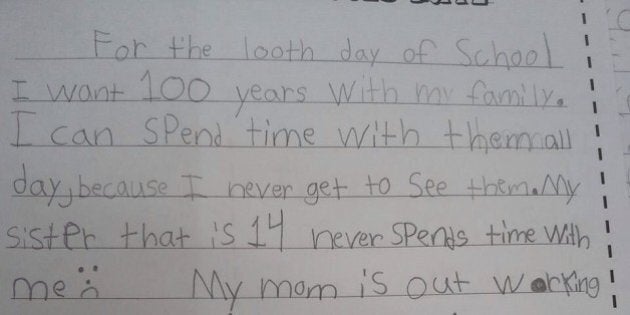 For the 100th day of School
I want 100 years with my family.
I can spend time with them all
day, because I never get to see them. My
sister that is 14 never spends time with
me :( My mom is out working